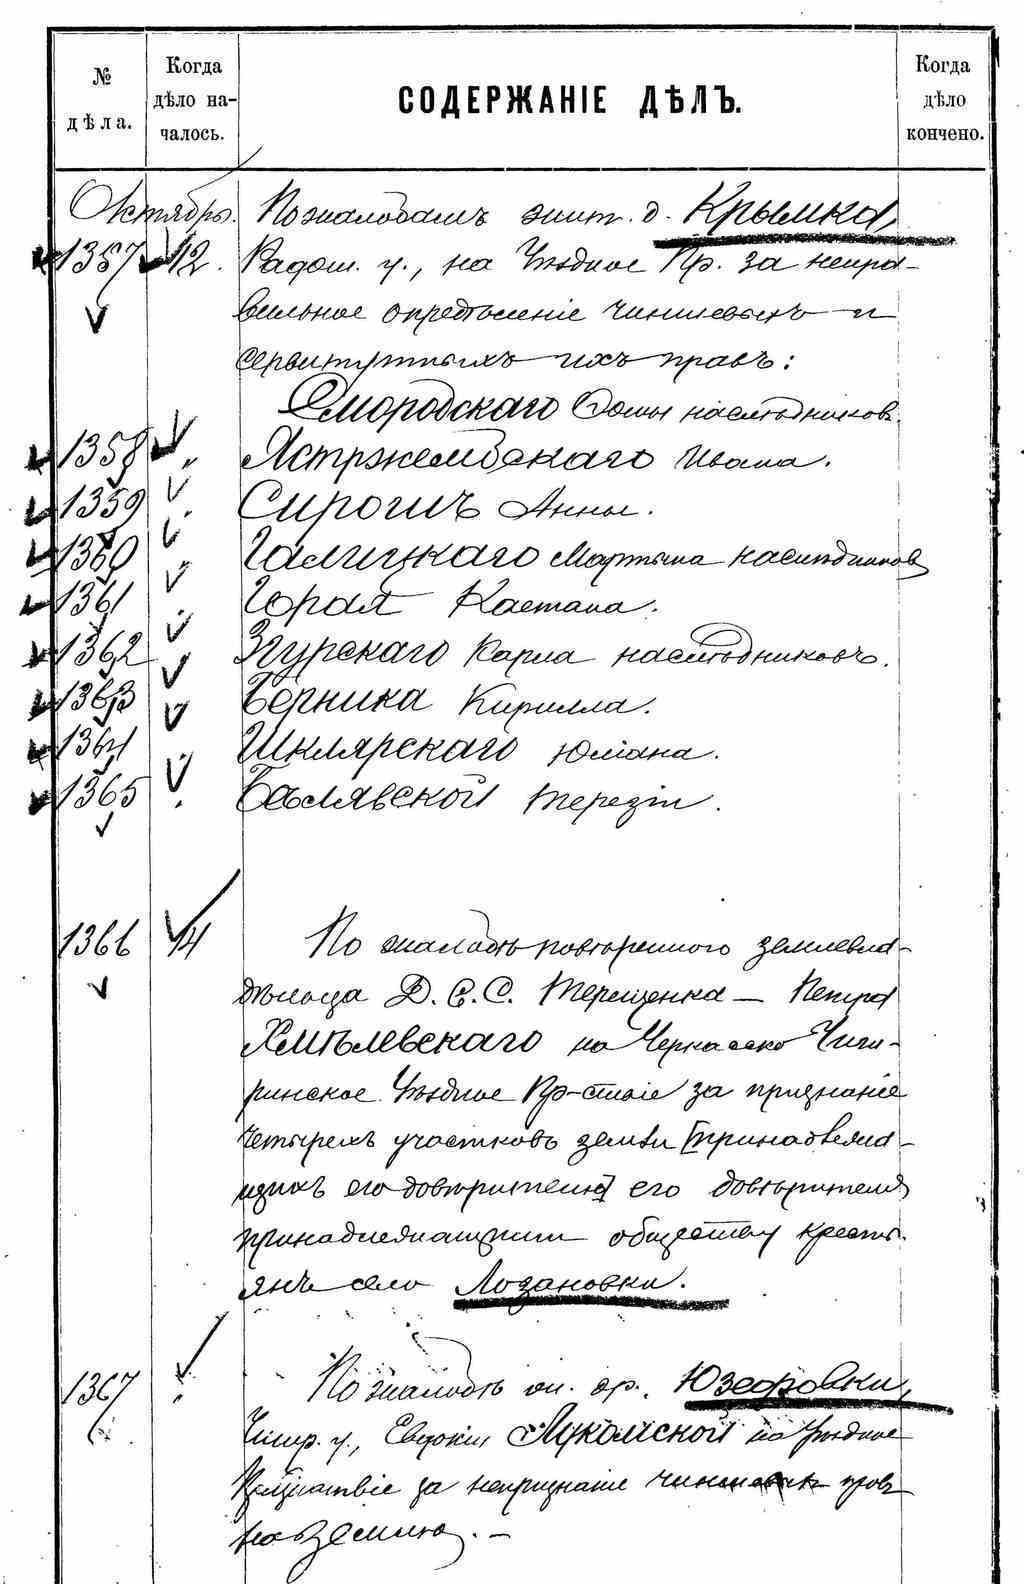 № дѣла.
Когда дѣло на-
чалось.
СОДЕРЖАНІЕ ДѢЛЪ.
Когда дѣло кончено.
Октябрь.
По жалобамъ жит. д. Крымка,
1357 12. Радом. у., на Уѣздное Пр. за непра-
вильное опредѣленіе чиншевыхъ и
сервитутныхъ ихъ правъ:
Смородскаго Фомы наслѣдниковъ.
1358 „ Ястржембскаго Ивана.
1359 „ Сирогичъ Анны.
1360 „ Галицкаго Мартына наслѣдниковъ
1361 „ Горая Каетана.
1362 „ Згурскаго Карла наслѣдниковъ.
1363 „ Берника Кирилла.
1364 „ Шклярскаго Юліана.
1365 „ Бѣлявской Терезіи.
1366 14 По жалобѣ повѣреннаго землевла-
дѣльца Д. С. С. Терещенка — Петра
Хмѣлевскаго на Черкасско Чиги-
ринское Уѣздное Пр-ствіе за признаніе
четырехъ участковъ земли [принадлежа-
щихъ его довѣрителю] его довѣрителя
принадлежащими обществу кресть-
янъ село Лозановки.
1367 „ По жалобѣ ок. др. Юзефовки,
Чигир. у., Евдокіи Лукомской на Уѣздное
Присутствіе за непризнаніе чиншевыхъ правъ
на землю. —